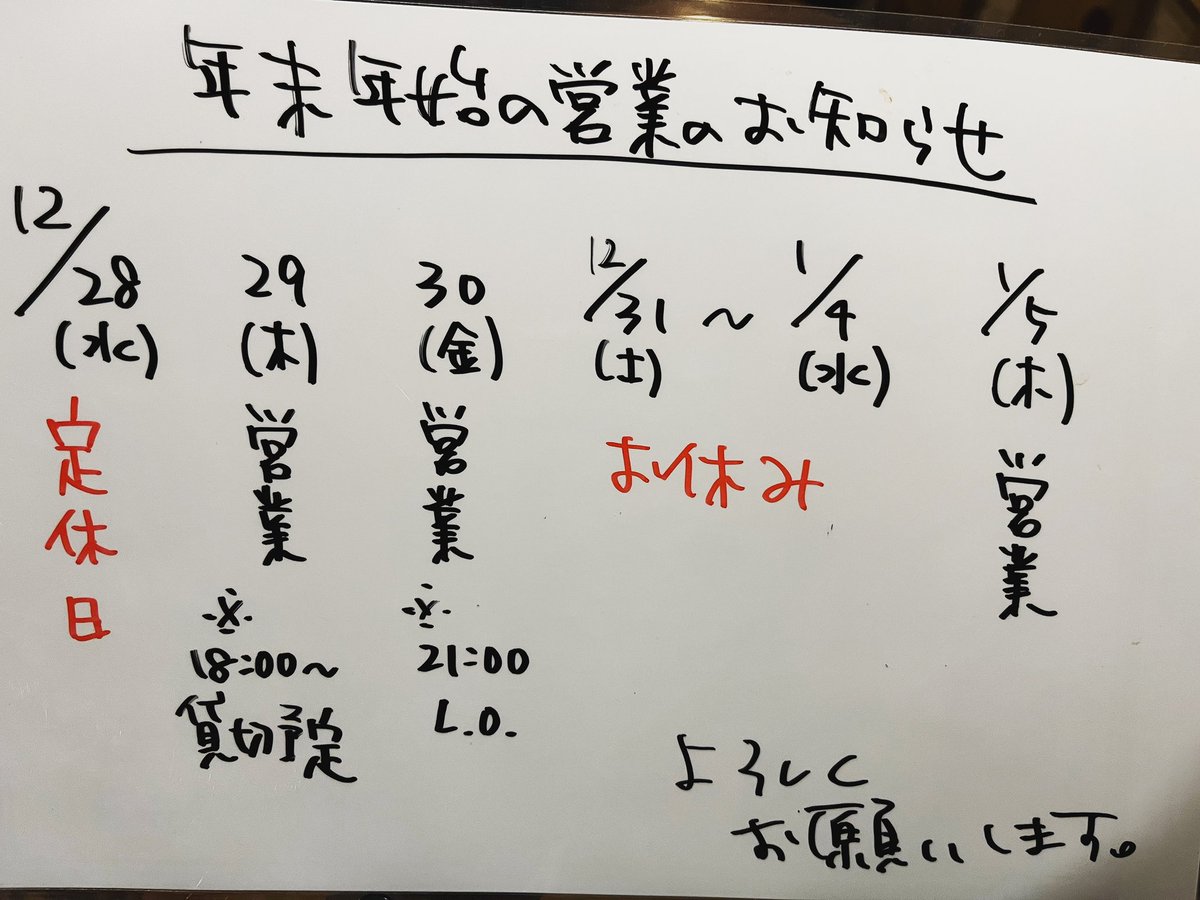 年末年始の営業のお知らせ
12/28
(水)
定休日
29
(木)
営業
※
18:00〜
貸切予定
30
(金)
営業
※
21:00
L.O.
12/31 〜 1/4
(土) (水)
お休み
1/5
(木)
営業
よろしく
お願いします。